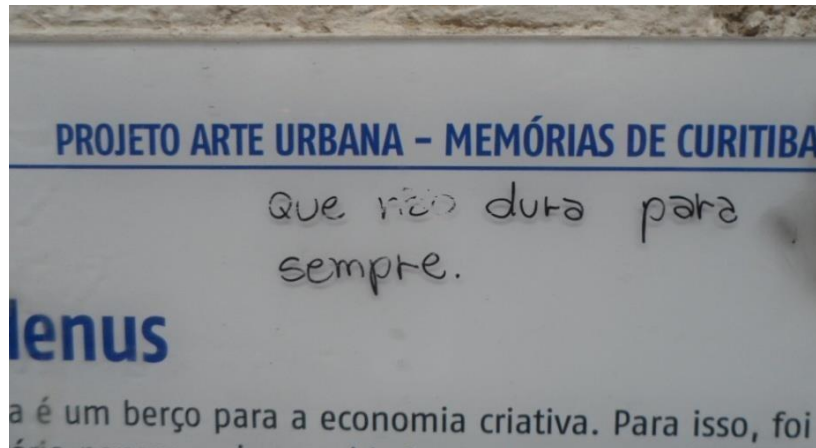 PROJETO ARTE URBANA – MEMÓRIAS DE CURITIBA
Que não dura para
sempre.
lenus
a é um berço para a economia criativa. Para isso, foi